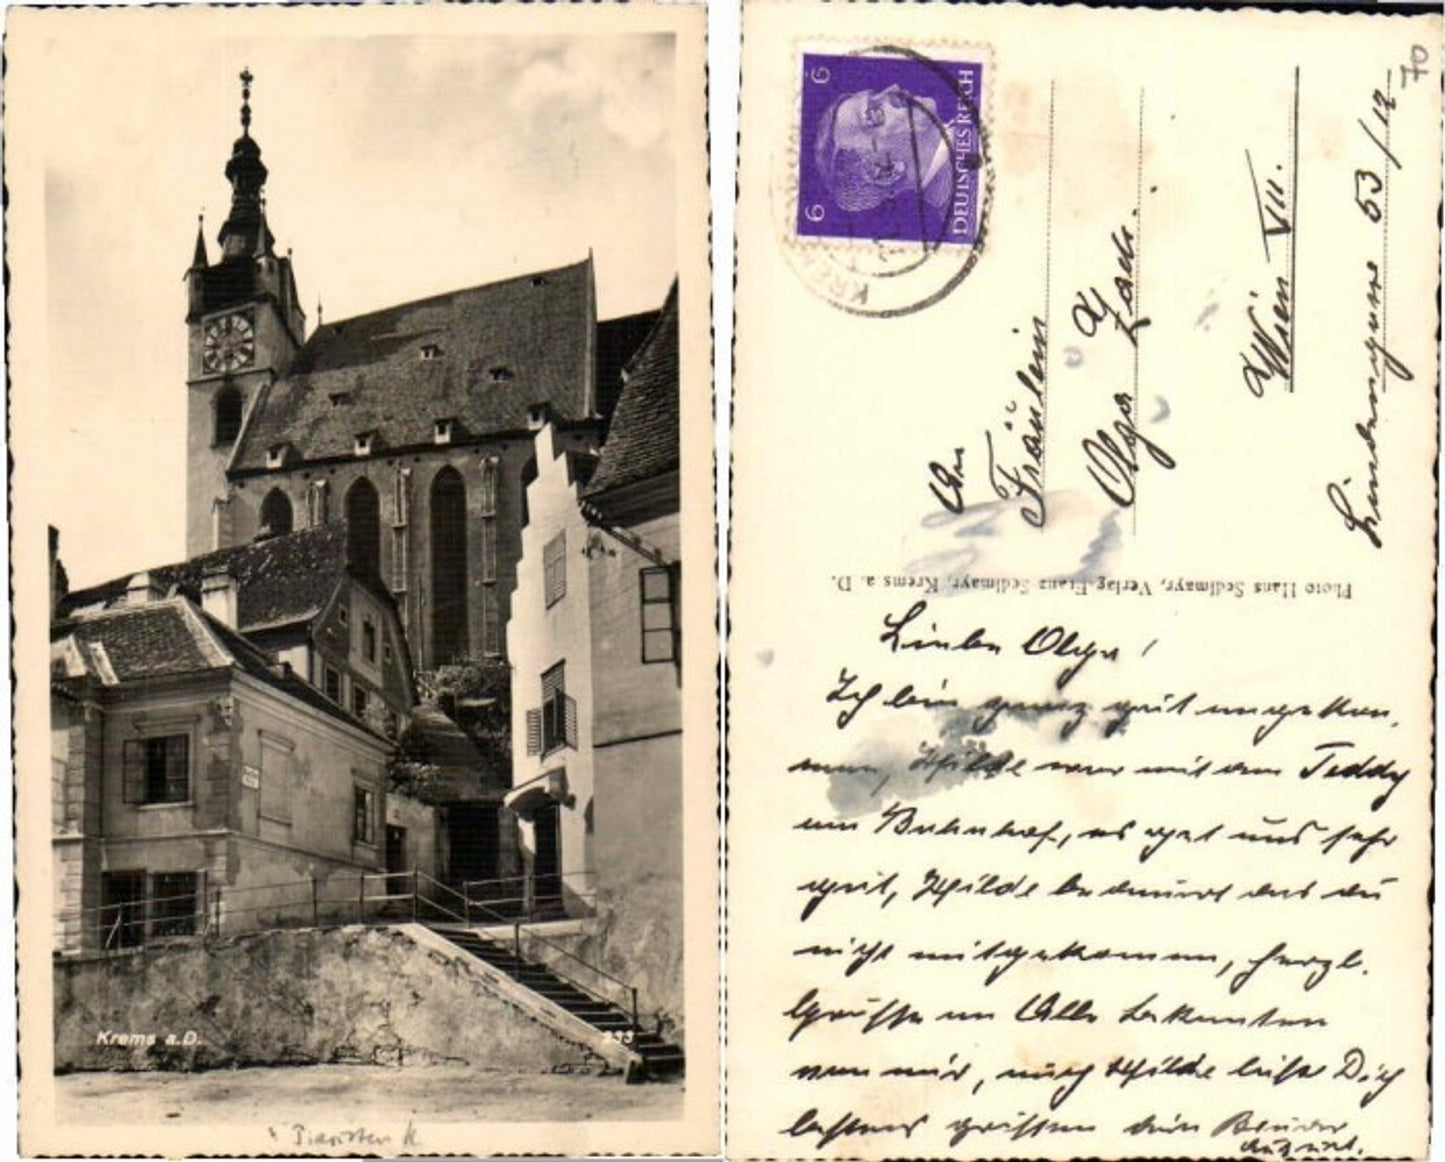 Krems a.D.
233
Piaristen K
6 6
DEUTSCHES REICH
KREMS
An
Fräulein
Olga
Wien VII.
Lindengasse 53/12
70
Photo Hans Sedlmayr, Verlag Franz Sedlmayr, Krems a. D.
Liebe Olga!
Ich bin ganz gut angekom,
men, Hilde war mit dem Teddy
am Bahnhof, es get uns sehr
gut, Hilde bedauert das du
nicht mitgekommen, herzl.
Grüsse an Alle Bekannten
von mir, auch Hilde lässt Dich
bestens grüssen dein Bruder
August.